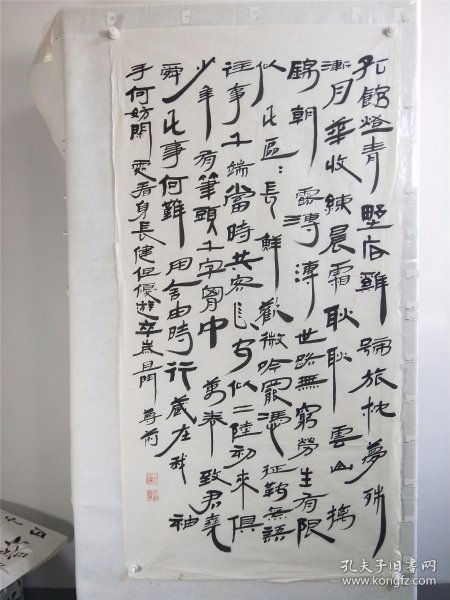 孤館燈青野店雞號旅枕夢殘
漸月華收練晨霜耿耿雲山摛
錦朝露漙漙世路無窮勞生有限
似此區:長鮮歡微吟罷憑征鞍無語
往事千端當時共客長安似二陸初來俱
少年有筆頭千字胷中萬卷致君堯
舜此事何難用舍由時行藏在我袖
手何妨閑處看身長健但優游卒歲且鬥尊前
孔夫子旧书网
www.kongfz.com